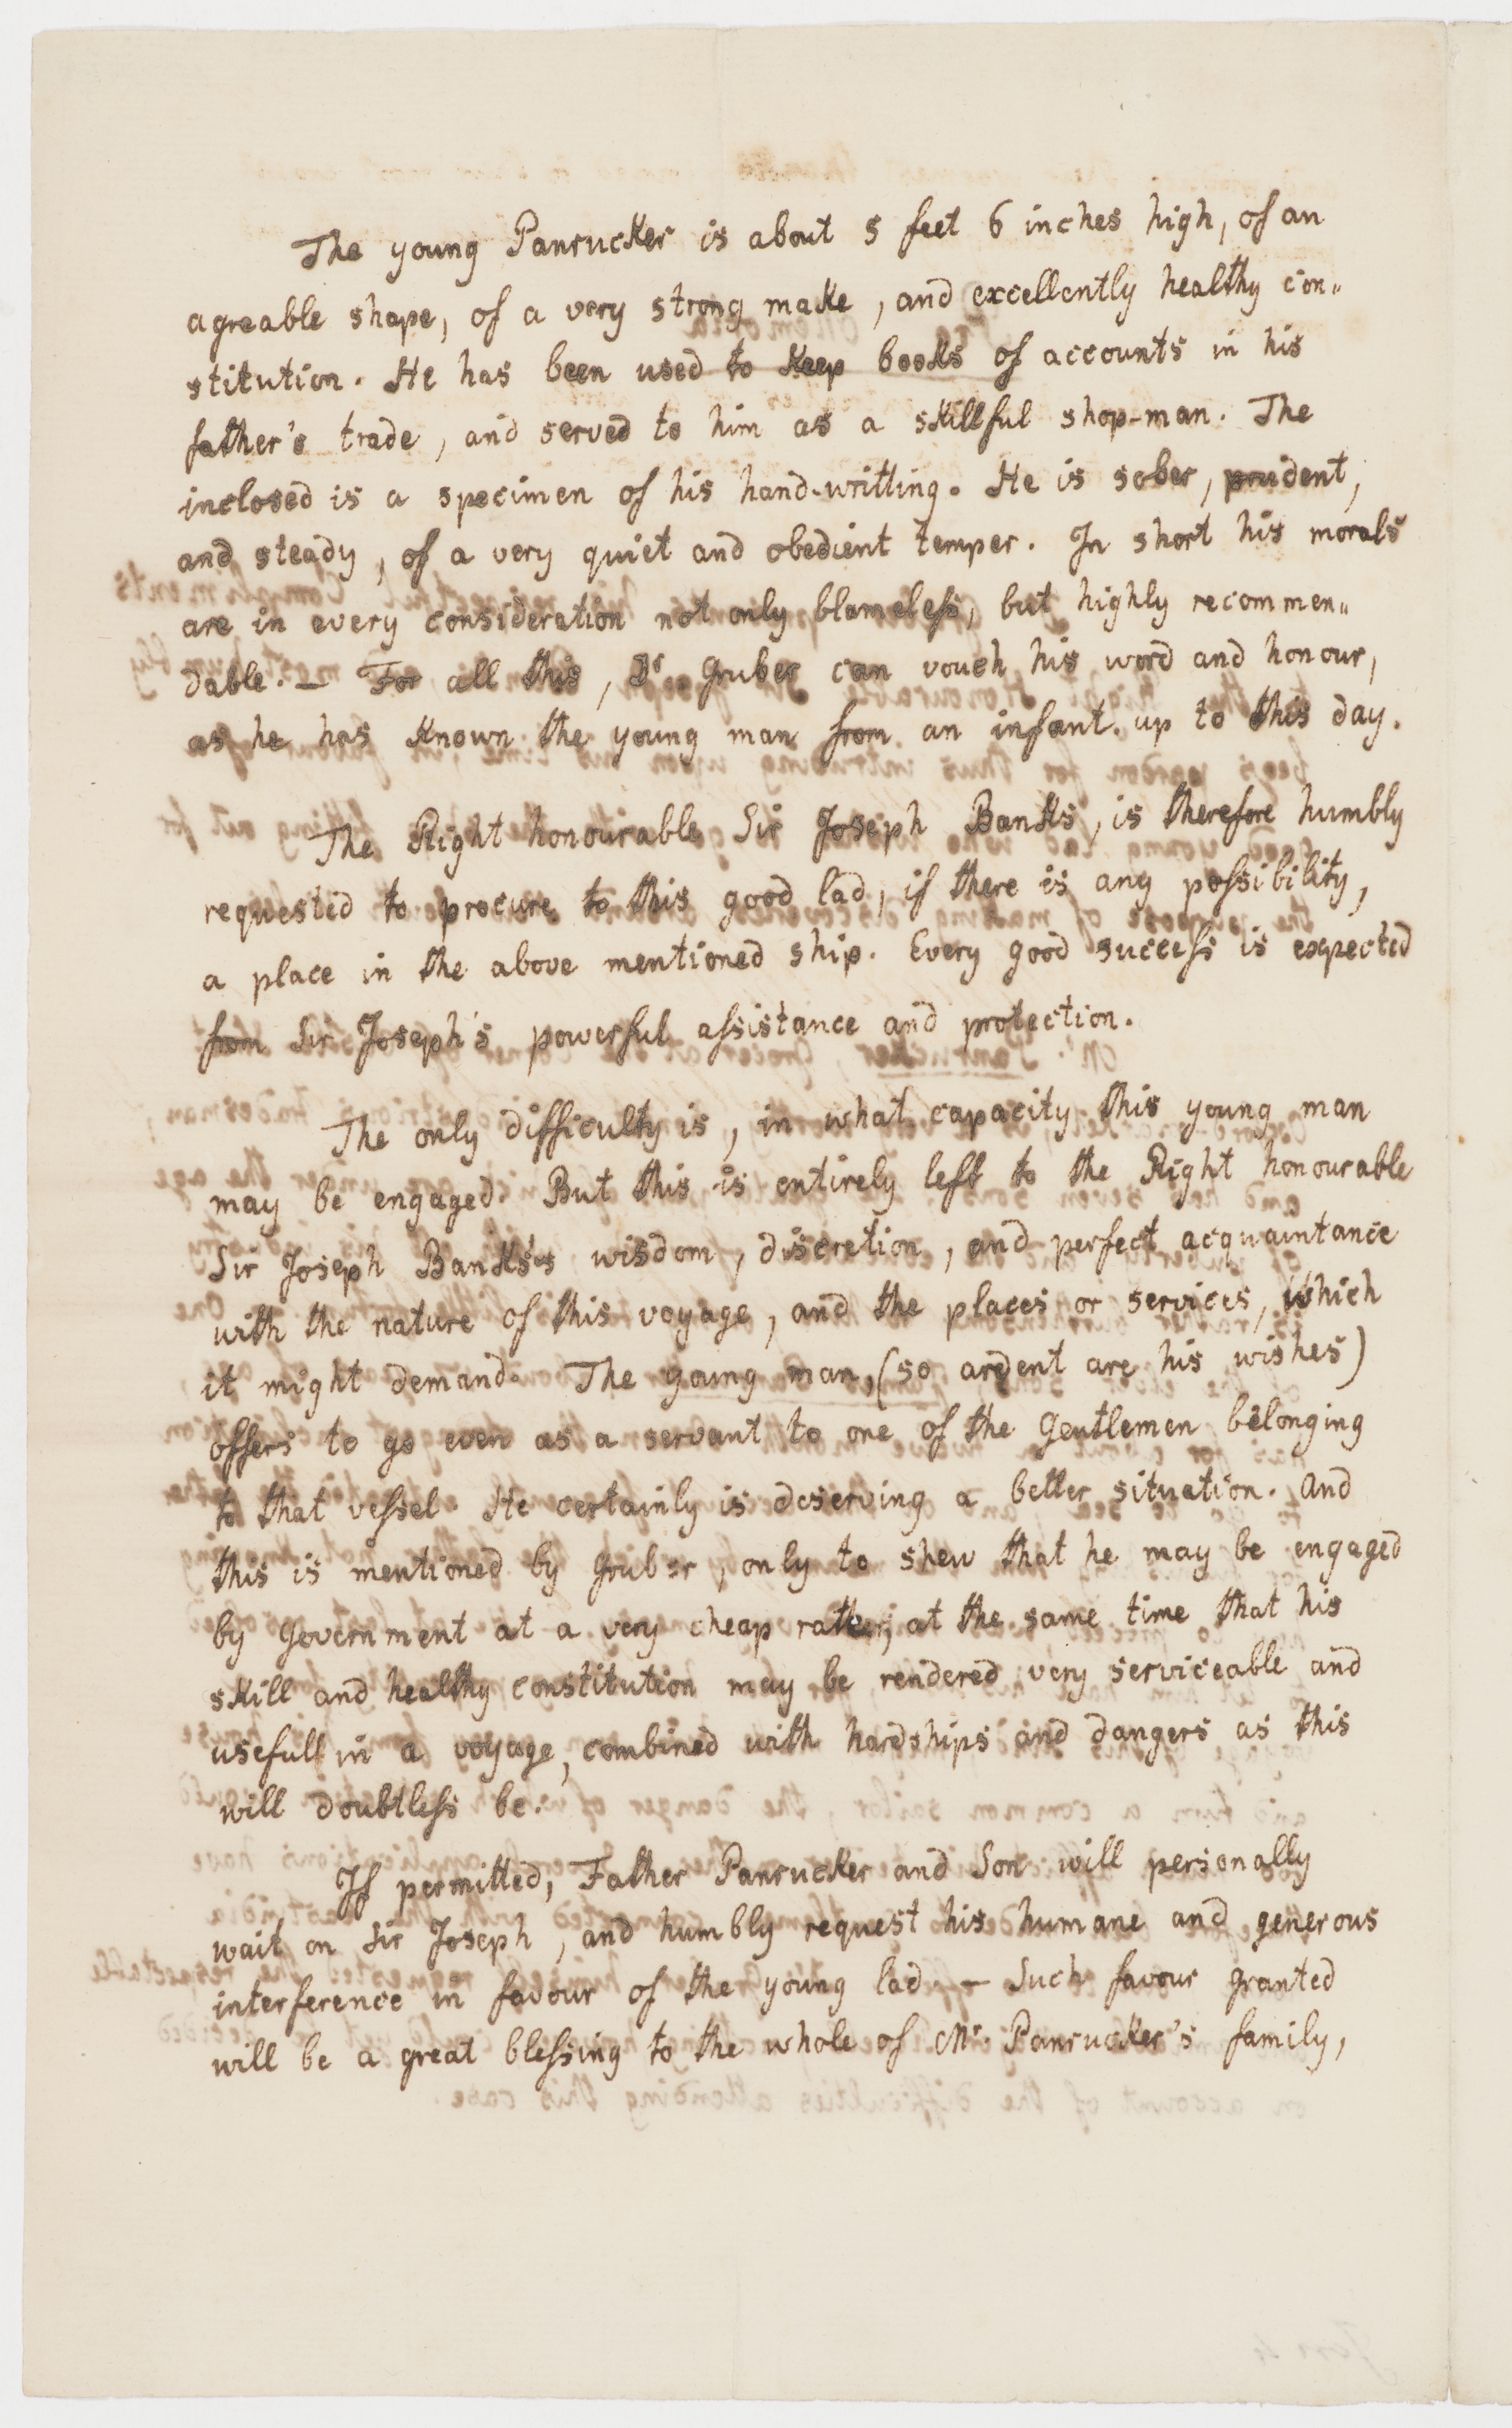 The young Panrucker is about 5 feet 6 inches high, of an
agreable shape, of a very strong make, and excellently healthy con„
stitution. He has been used to keep books of accounts in his
father's trade, and served to him as a skillful shop-man. The
inclosed is a specimen of his hand-writting. He is sober, prudent,
and steady, of a very quiet and obedient temper. In short his morals
are in every consideration not only blameless, but highly recommen„
dable. — For all this, Dr. Gruber can vouch his word and honour,
as he has known the young man from an infant up to this day.
The Right honourable Sir Joseph Banks, is therefore humbly
requested to procure to this good lad, if there is any possibility,
a place in the above mentioned ship. Every good success is expected
from Sir Joseph's powerful assistance and protection.
The only difficulty is, in what capacity this young man
may be engaged. But this is entirely left to the Right honourable
Sir Joseph Banks's wisdom, discretion, and perfect acquaintance
with the nature of this voyage, and the places or services, which
it might demand. The young man, (so ardent are his wishes)
offers to go even as a servant to one of the Gentlemen belonging
to that vessel. He certainly is deserving a better situation. And
this is mentioned by Gruber, only to shew that he may be engaged
by Government at a very cheap rate; at the same time that his
skill and healthy constitution may be rendered very serviceable and
usefull in a voyage, combined with hardships and dangers as this
will doubtless be.
If permitted, Father Panrucker and Son will personally
wait on Sir Joseph, and humbly request his humane and generous
interference in favour of the young lad. — Such favour granted
will be a great blessing to the whole of Mr. Panrucker's family,